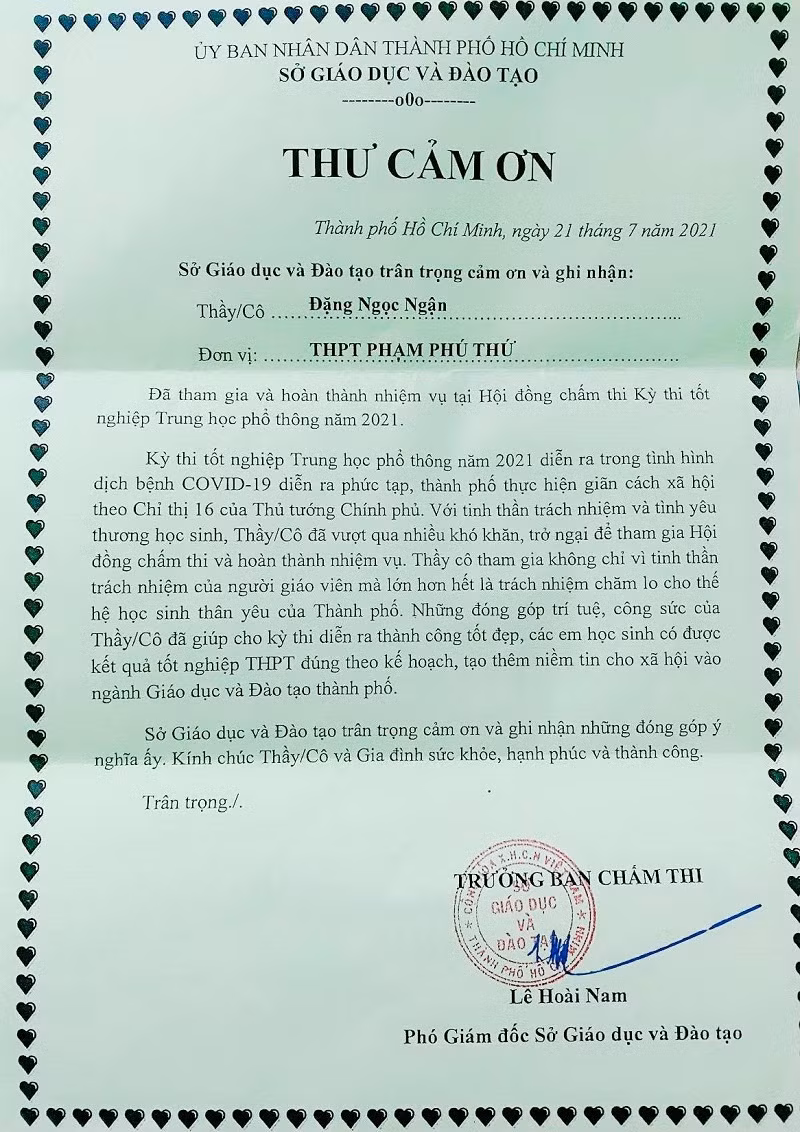 ỦY BAN NHÂN DÂN THÀNH PHỐ HỒ CHÍ MINH
SỞ GIÁO DỤC VÀ ĐÀO TẠO
--------o0o--------
THƯ CẢM ƠN
Thành phố Hồ Chí Minh, ngày 21 tháng 7 năm 2021
Sở Giáo dục và Đào tạo trân trọng cảm ơn và ghi nhận:
Thầy/Cô ......Đặng Ngọc Ngận......
Đơn vị: ......THPT PHẠM PHÚ THỨ......
Đã tham gia và hoàn thành nhiệm vụ tại Hội đồng chấm thi Kỳ thi tốt
nghiệp Trung học phổ thông năm 2021.
Kỳ thi tốt nghiệp Trung học phổ thông năm 2021 diễn ra trong tình hình
dịch bệnh COVID-19 diễn ra phức tạp, thành phố thực hiện giãn cách xã hội
theo Chỉ thị 16 của Thủ tướng Chính phủ. Với tinh thần trách nhiệm và tình yêu
thương học sinh, Thầy/Cô đã vượt qua nhiều khó khăn, trở ngại để tham gia Hội
đồng chấm thi và hoàn thành nhiệm vụ. Thầy cô tham gia không chỉ vì tinh thần
trách nhiệm của người giáo viên mà lớn hơn hết là trách nhiệm chăm lo cho thế
hệ học sinh thân yêu của Thành phố. Những đóng góp trí tuệ, công sức của
Thầy/Cô đã giúp cho kỳ thi diễn ra thành công tốt đẹp, các em học sinh có được
kết quả tốt nghiệp THPT đúng theo kế hoạch, tạo thêm niềm tin cho xã hội vào
ngành Giáo dục và Đào tạo thành phố.
Sở Giáo dục và Đào tạo trân trọng cảm ơn và ghi nhận những đóng góp ý
nghĩa ấy. Kính chúc Thầy/Cô và Gia đình sức khỏe, hạnh phúc và thành công.
Trân trọng./.
TRƯỞNG BAN CHẤM THI
SỞ
GIÁO DỤC
VÀ
ĐÀO TẠO
THÀNH PHỐ HỒ
Lê Hoài Nam
Phó Giám đốc Sở Giáo dục và Đào tạo